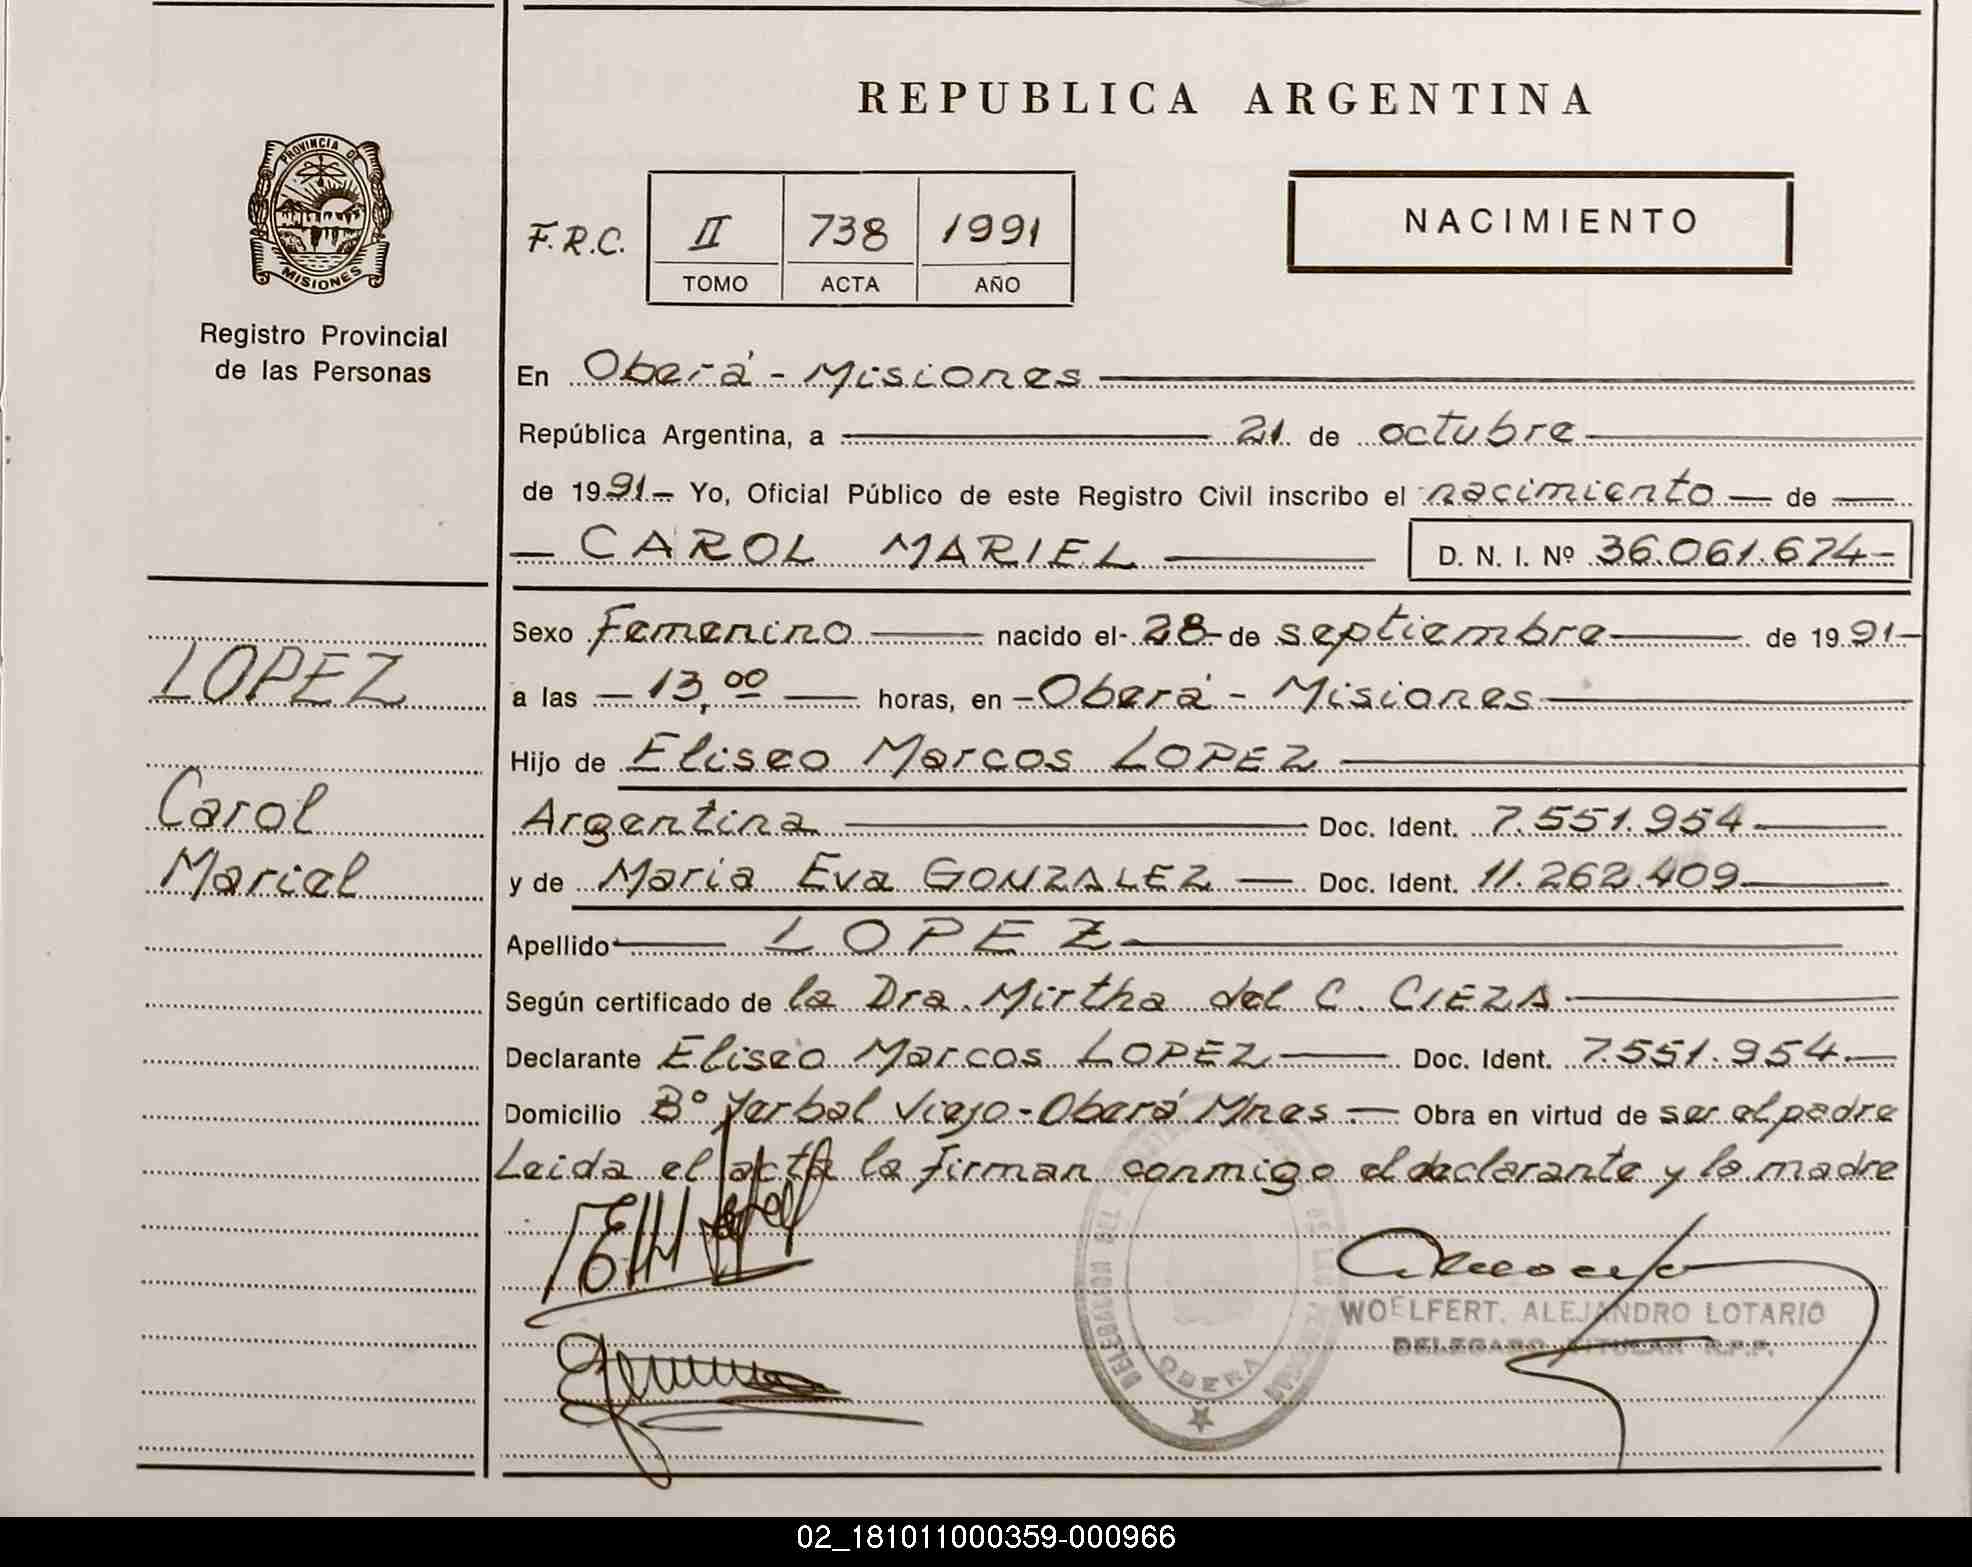 REPUBLICA ARGENTINA
PROVINCIA DE
MISIONES
Registro Provincial
de las Personas
F.R.C. II 738 1991
TOMO ACTA AÑO
NACIMIENTO
En Oberá - Misiones
República Argentina, a 21 de octubre
de 1991 Yo, Oficial Público de este Registro Civil inscribo el nacimiento de
CAROL MARIEL D. N. I. Nº 36.061.674-
Sexo Femenino nacido el 28 de septiembre de 1991
a las 13,00 horas, en Oberá - Misiones
Hijo de Eliseo Marcos LOPEZ
Argentina Doc. Ident. 7.551.954
y de Maria Eva GONZALEZ Doc. Ident. 11.262.409
Apellido LOPEZ
Según certificado de la Dra. Mirtha del C. CIEZA
Declarante Eliseo Marcos LOPEZ Doc. Ident. 7.551.954
Domicilio Bº Yerbal Viejo - Oberá Mnes. Obra en virtud de ser el padre
Leida el acta la firman conmigo el declarante y la madre
LOPEZ
Carol
Mariel
DELEGACION DEL
OBERA
WOELFERT. ALEJANDRO LOTARIO
DELEGADO TITULAR R.P.P.
02_181011000359-000966